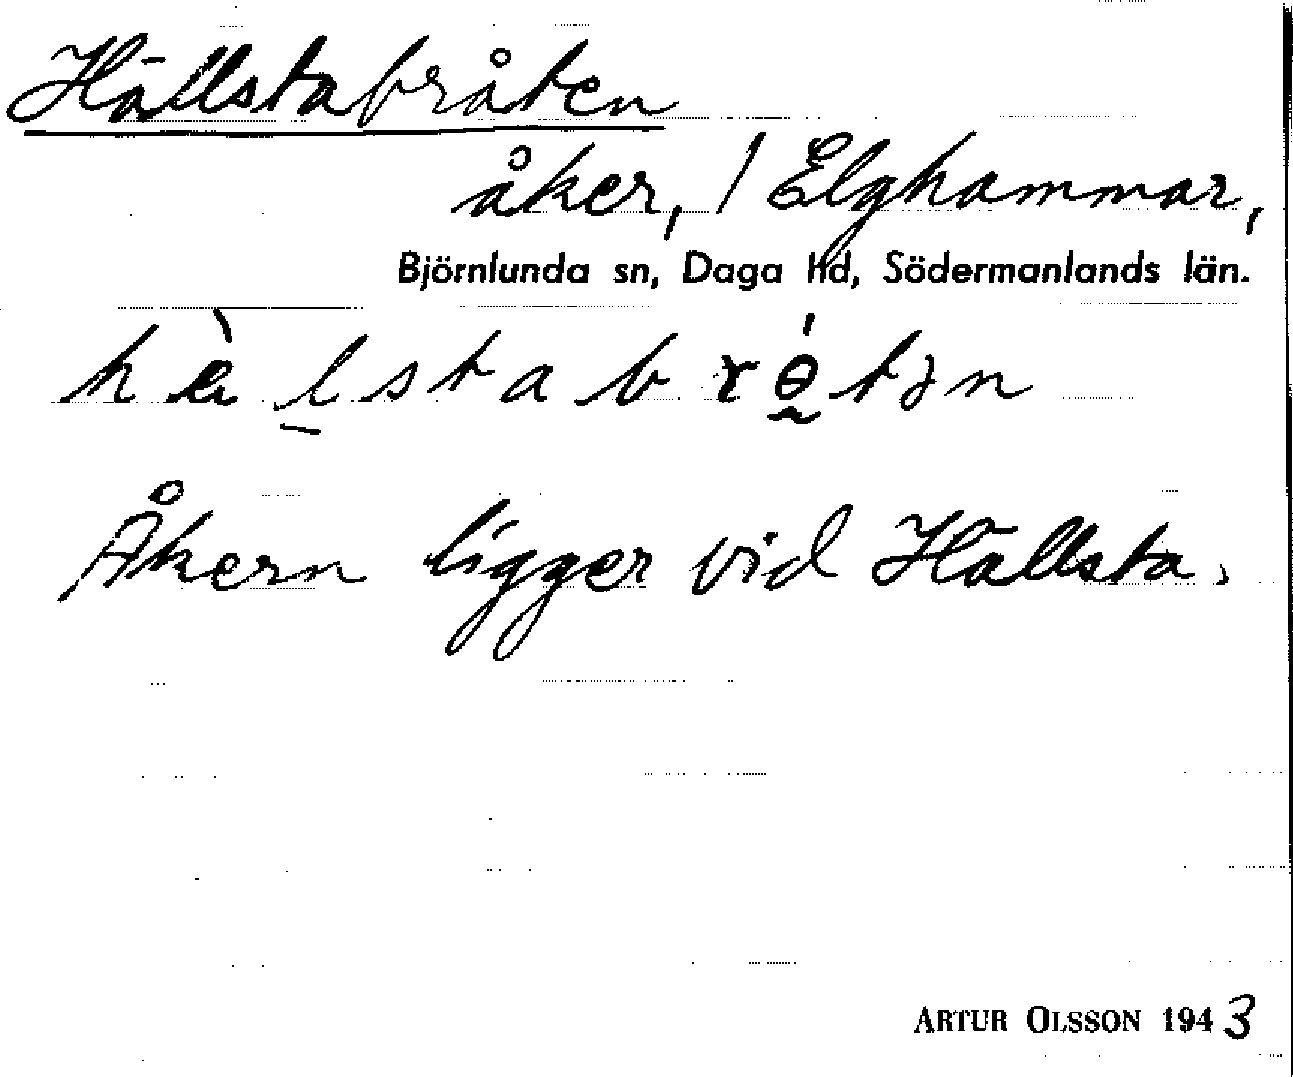 Hällstabråten
åker, / Elghammar,
Björnlunda sn, Daga hd, Södermanlands län.
hä̀l̠stabrθ̰́tən
Åkern ligger vid Hällsta.
ARTUR OLSSON 1943